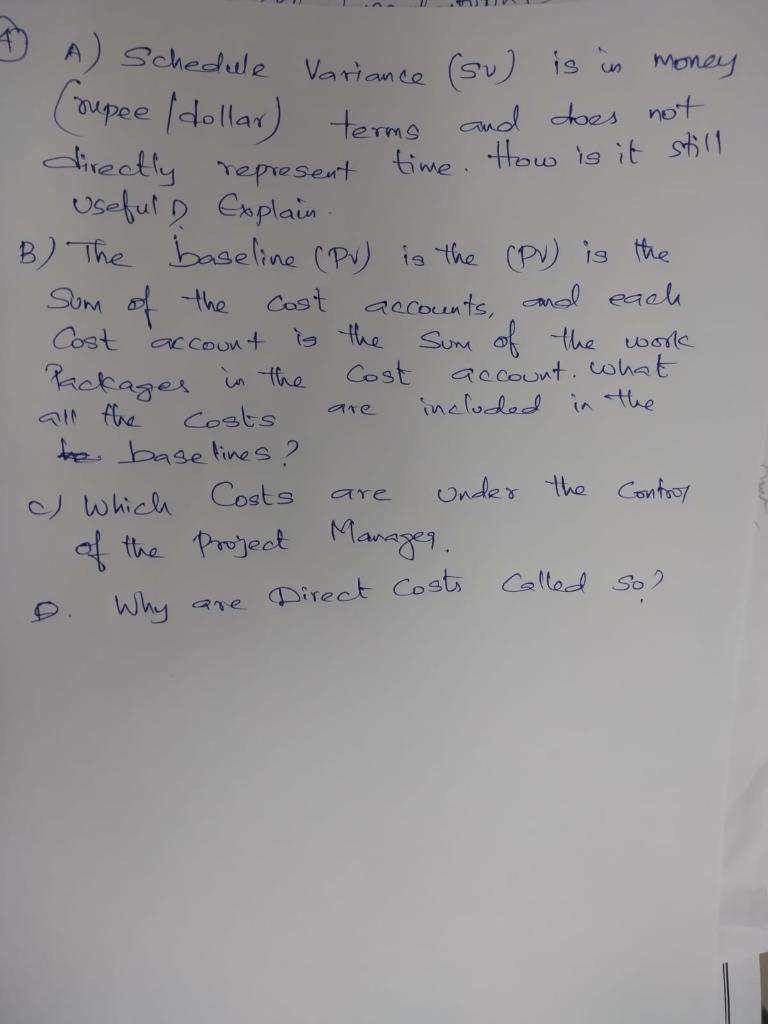 A) Schedule Variance (SV) is in money
(rupee/dollar) terms and does not
directly represent time. How is it still
useful? Explain.
B) The baseline (PV) is the (PV) is the
Sum of the cost accounts, and each
Cost account is the Sum of the work
Packages in the Cost account. What
all the Costs are included in the
baselines?
C) Which Costs are under the Control
of the Project Manager.
D. Why are Direct Costs Called so?